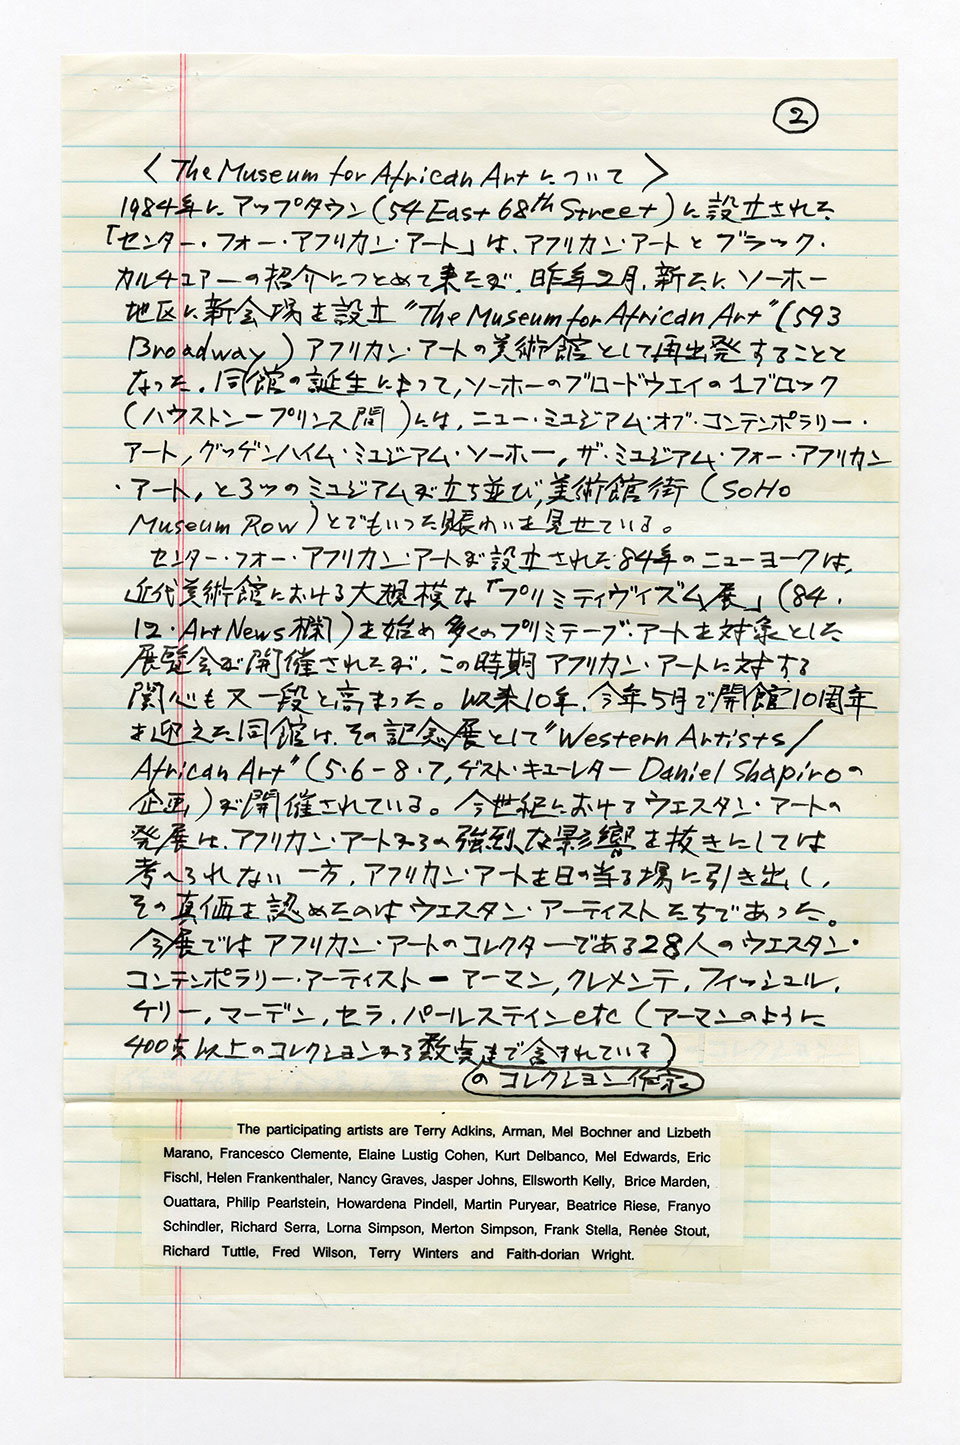 ②
〈 The Museum for African Art について 〉
1984年にアップタウン(54 East 68th Street)に設立された
「センター・フォー・アフリカン・アート」は、アフリカン・アートとブラック・
カルチュアーの紹介につとめて来たが、昨年2月、新たにソーホー
地区に新会場を設立 "The Museum for African Art" (593
Broadway) アフリカン・アートの美術館として再出発することと
なった。同館の誕生によって、ソーホーのブロードウエイの1ブロック
(ハウストンープリンス間)には、ニュー・ミュジアム・オブ・コンテンポラリー・
アート, グッゲンハイム・ミュジアム・ソーホー, ザ・ミュジアム・フォー・アフリカン
・アート, と3ツのミュジアムが立ち並び, 美術館街 (SoHo
Museum Row) とでもいった賑わいを見せている。
センター・フォー・アフリカン・アートが設立された84年のニューヨークは,
近代美術館における大規模な「プリミティヴイズム展」(84.
12. Art News 欄)を始め多くのプリミテーブ・アートを対象とした
展覧会が開催されたが、この時期アフリカン・アートに対する
関心も又一段と高まった。以来10年, 今年5月で開館10周年
を迎えた同館は、その記念展として "Western Artists/
African Art" (5・6-8・7, ゲスト・キューレター Daniel Shapiro の
企画)が開催されている。今世紀におけるウエスタン・アートの
発展は、アフリカン・アートからの強烈な影響を抜きにしては
考へられない一方, アフリカン・アートを日の当る場に引き出し,
その真価を認めたのはウエスタン・アーティストたちであった。
今展ではアフリカン・アートのコレクターである28人のウエスタン・
コンテンポラリー・アーティストーアーマン, クレメンテ, フィッシュル,
ケリー, マーデン, セラ, パールスティン etc (アーマンのように
400点以上のコレクションから数点まで含まれている)
のコレクション
The participating artists are Terry Adkins, Arman, Mel Bochner and Lizbeth
Marano, Francesco Clemente, Elaine Lustig Cohen, Kurt Delbanco, Mel Edwards, Eric
Fischl, Helen Frankenthaler, Nancy Graves, Jasper Johns, Ellsworth Kelly, Brice Marden,
Ouattara, Philip Pearlstein, Howardena Pindell, Martin Puryear, Beatrice Riese, Franyo
Schindler, Richard Serra, Lorna Simpson, Merton Simpson, Frank Stella, Renèe Stout,
Richard Tuttle, Fred Wilson, Terry Winters and Faith-dorian Wright.